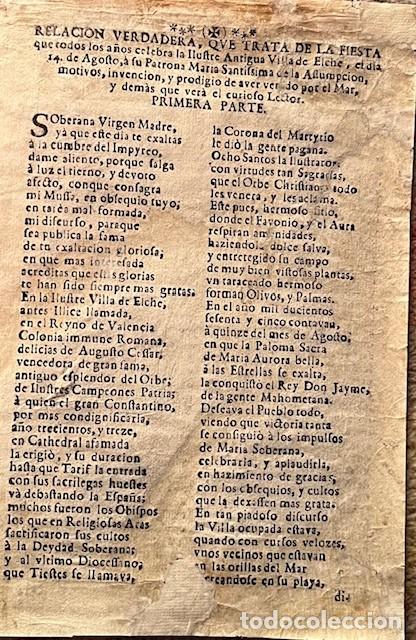 RELACION VERDADERA, QVE TRATA DE LA FIESTA
que todos los años celebra la Ilustre Antigua Villa de Elche, el dia
14. de Agosto, à su Patrona Maria Santissima de la Assumpcion,
motivos, invencion, y prodigio de aver verido por el Mar,
y demàs que verà el curioso Lector.
PRIMERA PARTE.
SOberana Virgen Madre,
yà que este dia te exaltas
à la cumbre del Impyreo,
dame aliento, porque salga
à luz el tierno, y devoto
afecto, con que consagra
mi Mussa, en obsequio tuyo;
en taréa mal formada,
mi discurso, paraque
sea publica la fama
de tu exaltacion gloriosa;
en que mas interesada
acreditas que estas glorias
te han sido siempre mas gratas.
En la Ilustre Villa de Elche,
antes Illice llamada,
en el Reyno de Valencia
Colonia immune Romana,
delicias de Augusto Cessar,
vencedora de gran fama,
antiguo esplendor del Orbe;
de Ilustres Campeones Patria;
à quien el gran Constantino,
por mas condignificarla,
año trecientos, y treze,
en Cathedral afamada
la erigiò, y su duracion
hasta que Tarif la entrada
con sus sacrilegas huestes
và debastando la España;
muchos fueron los Obispos
los que en Religiosas Aras
sacrificaron sus cultos
à la Deydad Soberana;
y al vltimo Diocessano,
que Tiestes se llamava,
la Corona del Martyrio
le diò la gente pagana.
Ocho Santos la Ilustraron
con virtudes tan Sagradas,
que el Orbe Christiano todo
les venera, y les aclama.
Este pues, hermoso sitio,
donde el Favonio, y el Aura
respiran amenidades,
haziendole dolce salva,
y entretegido su campo
de muy bien vistosas plantas,
vn taraceado hermoso
forman Olivos, y Palmas.
En el año mil ducientos
sesenta y cinco contavan,
à quinze del mes de Agosto,
en que la Paloma Sacra
de Maria Aurora bella,
à las Estrellas se exalta,
la conquistò el Rey Don Jayme,
de la gente Mahometana.
Deseava el Pueblo todo,
viendo que victoria tanta
se consiguiò à los impulsos
de Maria Soberana,
celebrarla, y aplaudirla,
en hazimiento de gracias,
con los obsequios, y cultos
que la dexassen mas grata.
En tan piadoso discurso
la Villa ocupada estava,
quando con cursos velozes,
vnos vecinos que estavan
en las orillas del Mar
recreandose en su playa,
di-
todocoleccion
todocoleccion.net